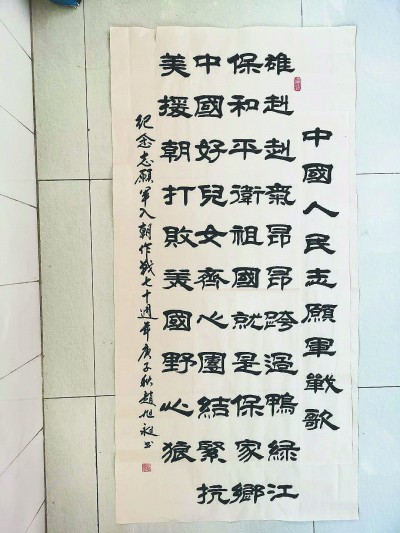 中國人民志願軍戰歌
雄赳赳氣昂昂跨過鴨綠江
保和平衛祖國就是保家鄉
中國好兒女齊心團結緊抗
美援朝打敗美國野心狼
紀念志願軍入朝作戰七十週年庚子秋趙旭書